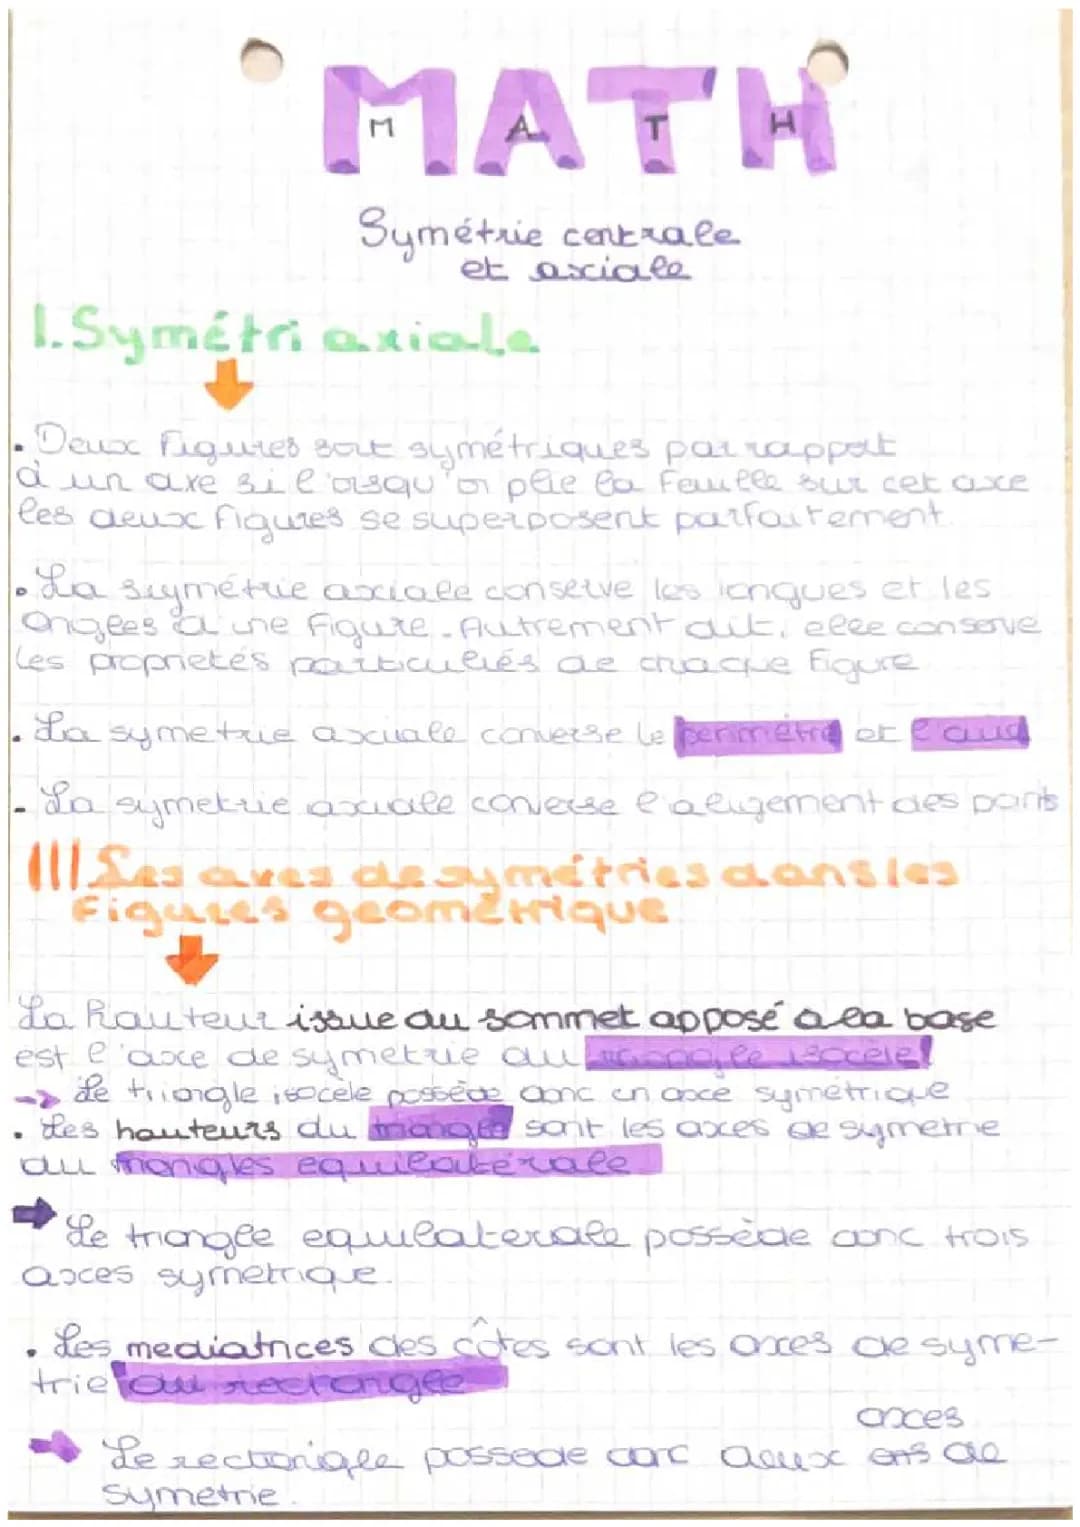 MATH
M A T H
Symétrie centrale
et axciale
1. Symétri axiale
• Deux Figures sont symétriques par rapport
à un axe si l'orsqu'on plie la Feuille sur cet axce
les deux figures se superposent parfaitement.
• La symétrie axciale conserve les longues et les
Angles d'une Figure. Autrement dit, elle conserve
Les proprietés particuliés de chaque Figure
• La symetrie axciale converse le perimétre et l'aire
- La symetrie axciale converse l'aligement des points
III Les axes de symétries dans les
Figures geométrique
La hauteur issue du sommet apposé a la base
est l'axe de symetrie du triangle isocèle!
-> Le triangle isocèle possède donc un axce symétrique
• Les hauteurs du triangle sont les axces de symetrie
du triangles equilatérale
Le triangle equilaterale possède donc trois
axces symetrique.
• Les mediatrices des côtes sont les axces de syme-
trie du rectangle
axces
Le rectanigle possede donc deux de
symetrie.